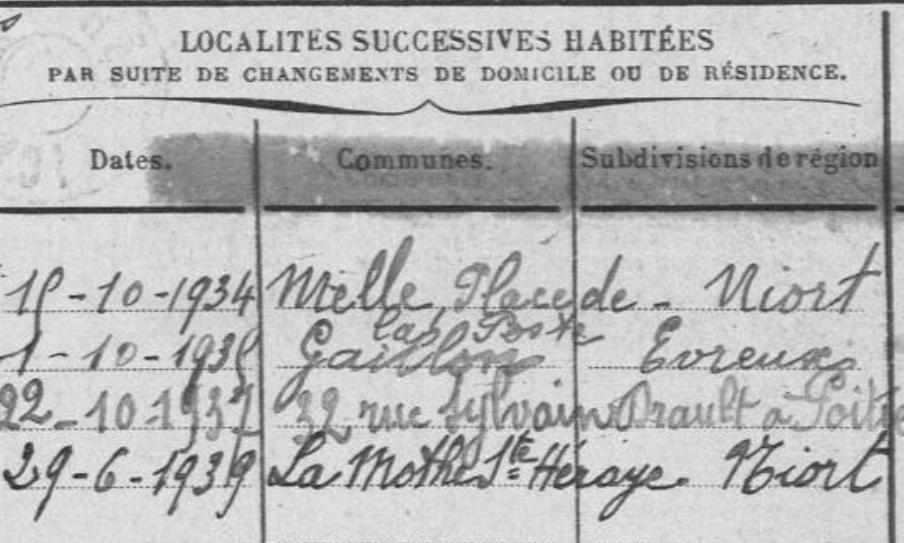 LOCALITÉS SUCCESSIVES HABITÉES
PAR SUITE DE CHANGEMENTS DE DOMICILE OU DE RÉSIDENCE.
Dates. Communes. Subdivisions de région
15-10-1934 Melle Place de - Niort
la Poste
1-10-1935 Gaillon Evreux
22-10-1937 32 rue Sylvain Drault à
29-6-1939 La Mothe Ste Héraye. Niort